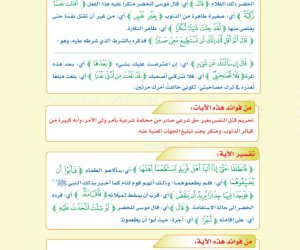 الخضر ذلك الغلام ﴿ قَالَ ﴾ أي: قال موسى للخضر منكرا عليه هذا الفعل ﴿ أَقَتَلْتَ نَفْسًا
زَكِيَّةً ﴾ أي: صغيرة طاهرة من الذنوب ﴿ بِغَيْرِ نَفْسٍ ﴾ أي: من غير أن تقتل نفسًا حتى
يقتص منها
﴿ قَالَ أَلَمْ أَقُل لَّكَ إِنَّكَ لَن تَسْتَطِيعَ مَعِيَ صَبْرًا ﴾ فذكره بالشرط الذي شرطه عليه، وهو:
﴿ قَالَ إِن سَأَلْتُكَ عَن شَيْءٍ ﴾ أي: إن اعترضت عليك بشيء ﴿ بَعْدَهَا ﴾ أي: بعد هذه
المرة ﴿ فَلَا تُصَاحِبْنِي ﴾ أي: فلا تتركني أصحبك ﴿ قَدْ بَلَغْتَ مِن لَّدُنِّي عُذْرًا ﴾ أي: بلغت مبلغًا
تعذر به في ترك مصاحبتي؛ لكوني خالفت أمرك مرتين.
من فوائد هذه الآيات:
تحريم قتل النفس بغير حق شرعي صادر من محكمة شرعية بأمر ولي الأمر، وأنه كبيرة من
كبائر الذنوب، ومنكر يجب تبليغ الجهات المعنية عنه.
تفسير الآية:
﴿ فَانطَلَقَا حَتَّى إِذَا أَتَيَا أَهْلَ قَرْيَةٍ اسْتَطْعَمَا أَهْلَهَا ﴾ أي: سألاهم الطعام ﴿ فَأَبَوْا أَن
يُضَيِّفُوهُمَا ﴾ أي: فلم يطعموهما؛ وذلك أنهم قوم لئام كما أخبر بذلك النبي
﴿ فَوَجَدَا فِيهَا جِدَارًا يُرِيدُ أَن يَنقَضَّ ﴾ أي: قرب أن يسقط لميلانه ﴿ فَأَقَامَهُ ﴾ أي: فرده
الخضر إلى حالة الاستقامة. ﴿ قَالَ ﴾ أي: قال موسى للخضر ﴿ لَوْ شِئْتَ لَاتَّخَذْتَ عَلَيْهِ ﴾
أي: على إقامته ﴿ أَجْرًا ﴾ أي: أجرة؛ حيث أبوا أن يطعمونا.
من فوائد هذه الآية: